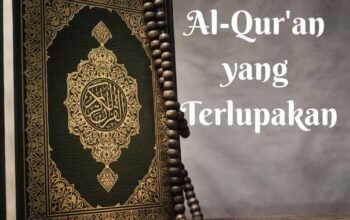 Al-Qur'an
yang
Terlupakan
القرآن الكريم